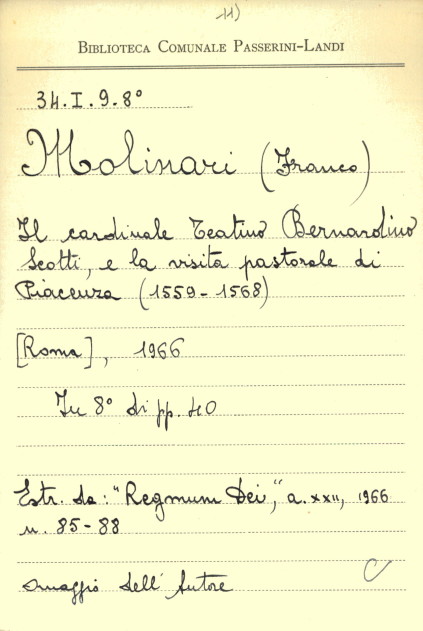 11)
BIBLIOTECA COMUNALE PASSERINI-LANDI
34.I.9.8°
Molinari (Franco)
Il cardinale Teatino Bernardino
Scotti, e la visita pastorale di
Piacenza (1559-1568)
[Roma], 1966
In 8° di pp. 40
Estr. da: "Regnum Dei", a. XXII, 1966
n. 85-88
C
omaggio dell'Autore